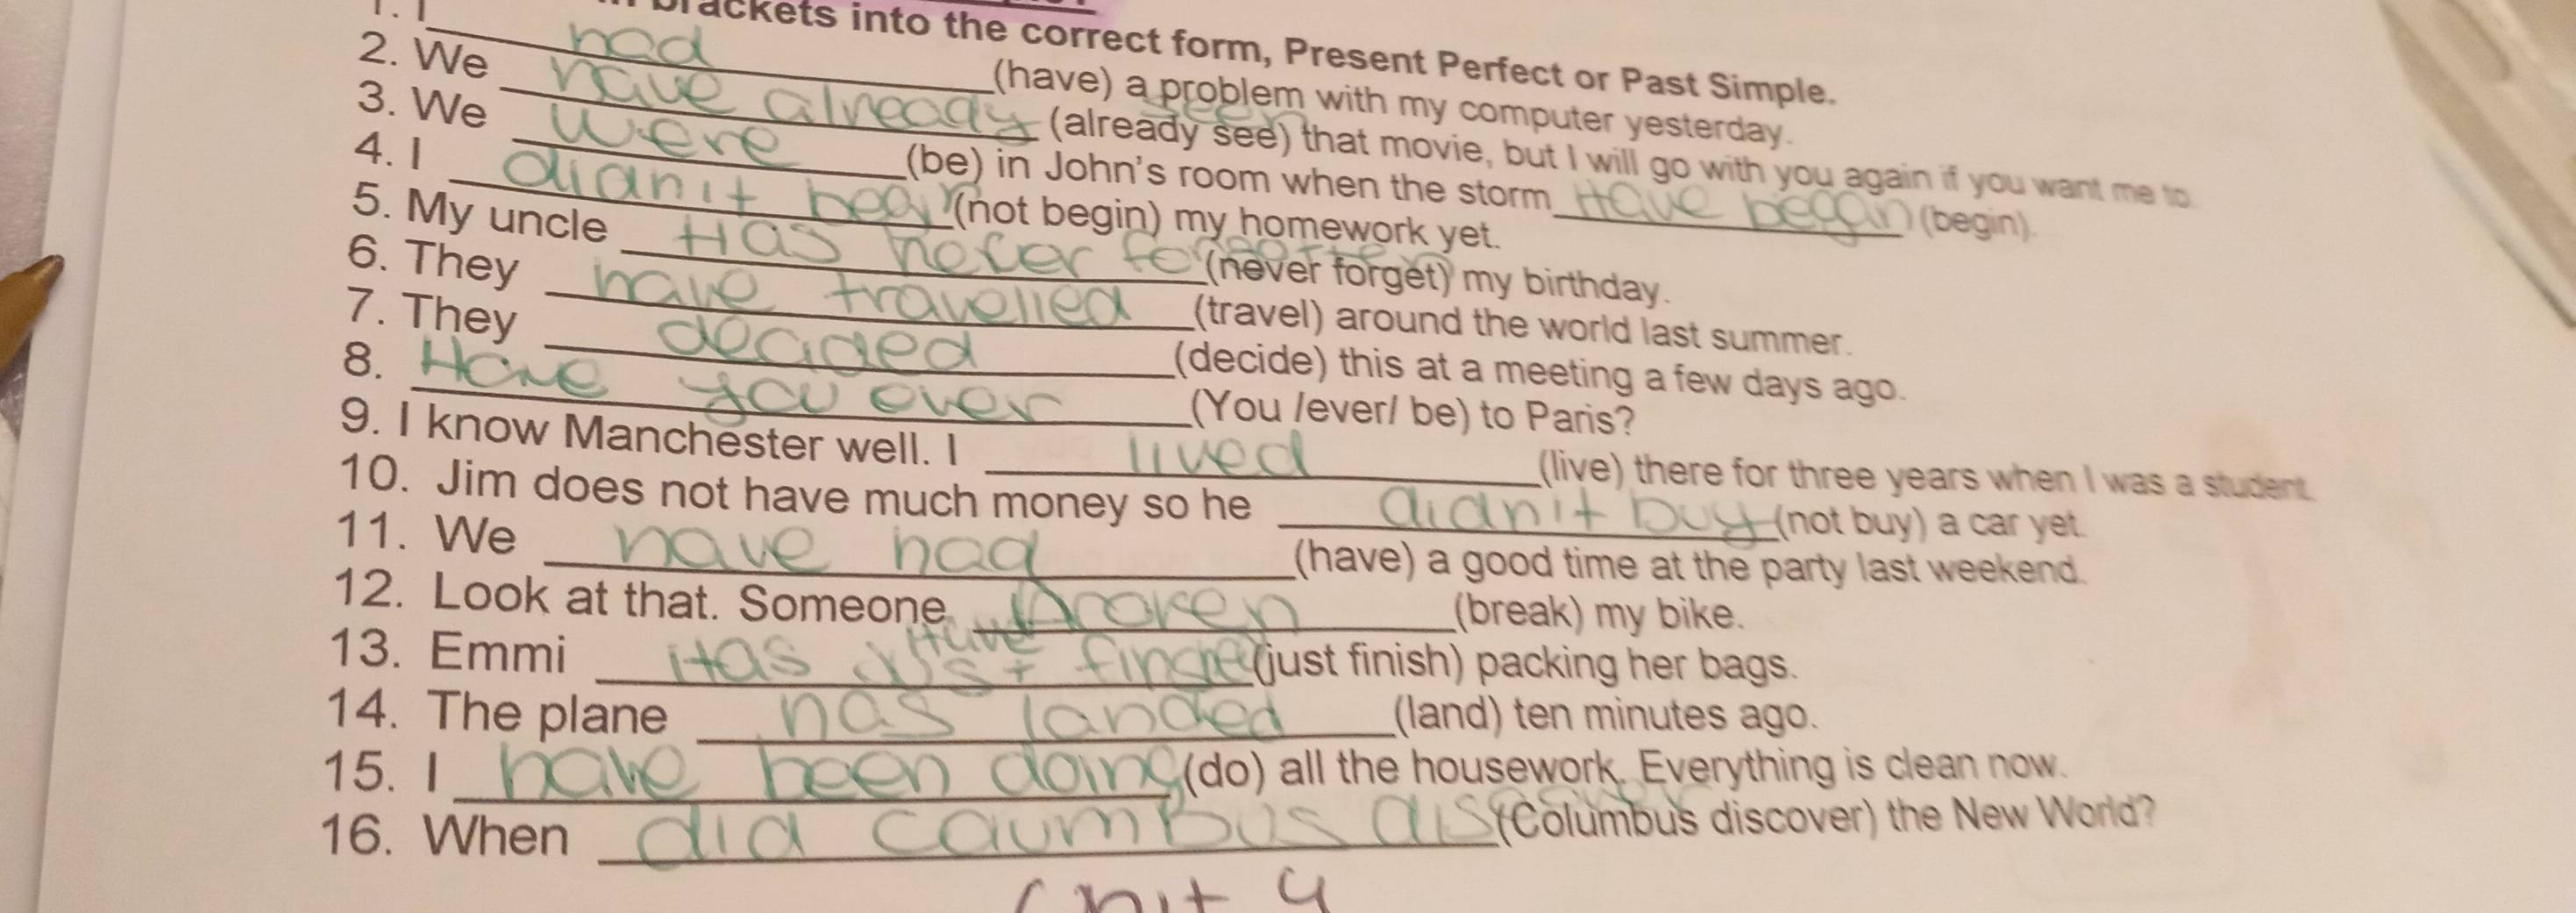 brackets into the correct form, Present Perfect or Past Simple.
1. I had (have) a problem with my computer yesterday.
2. We have already seen (already see) that movie, but I will go with you again if you want me to.
3. We were (be) in John's room when the storm Have began (begin).
4. I didn't (not begin) my homework yet.
5. My uncle Has never forgotten (never forget) my birthday.
6. They have travelled (travel) around the world last summer.
7. They decided (decide) this at a meeting a few days ago.
8. Have you ever (You /ever/ be) to Paris?
9. I know Manchester well. I lived (live) there for three years when I was a student.
10. Jim does not have much money so he didn't buy (not buy) a car yet.
11. We have had (have) a good time at the party last weekend.
12. Look at that. Someone Have broken (break) my bike.
13. Emmi Has just (just finish) packing her bags.
14. The plane has landed (land) ten minutes ago.
15. I have been doing (do) all the housework. Everything is clean now.
16. When did (Columbus discover) the New World?
Unit 4